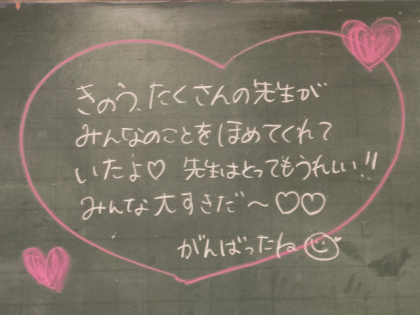 きのう、たくさんの先生が
みんなのことをほめてくれて
いたよ♡ 先生はとってもうれしい!!
みんな大すきだ〜♡♡
がんばったね